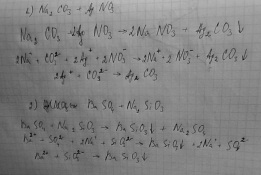 1) Na₂CO₃ + AgNO₃
Na₂CO₃ + 2AgNO₃ → 2NaNO₃ + Ag₂CO₃↓
2Na⁺ + CO₃²⁻ + 2Ag⁺ + 2NO₃⁻ → 2Na⁺ + 2NO₃⁻ + Ag₂CO₃↓
2Ag⁺ + CO₃²⁻ → Ag₂CO₃
2) SO₄ + Na₂SiO₃
SO₄ + Na₂SiO₃ → SiO₃↓ + Na₂SO₄
²⁺ + SO₄²⁻ + 2Na⁺ + SiO₃²⁻ → SiO₃↓ + 2Na⁺ + SO₄²⁻
²⁺ + SiO₃²⁻ → SiO₃↓